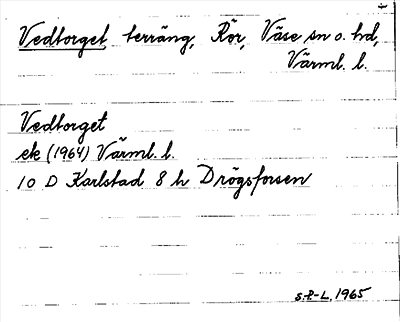 Vedtorget, terräng, Rör, Väse sn o. hd,
Värml. l.
Vedtorget
ek (1964) Värml. l.
10 D Karlstad 8 h Drögsforsen
S.P-L. 1965